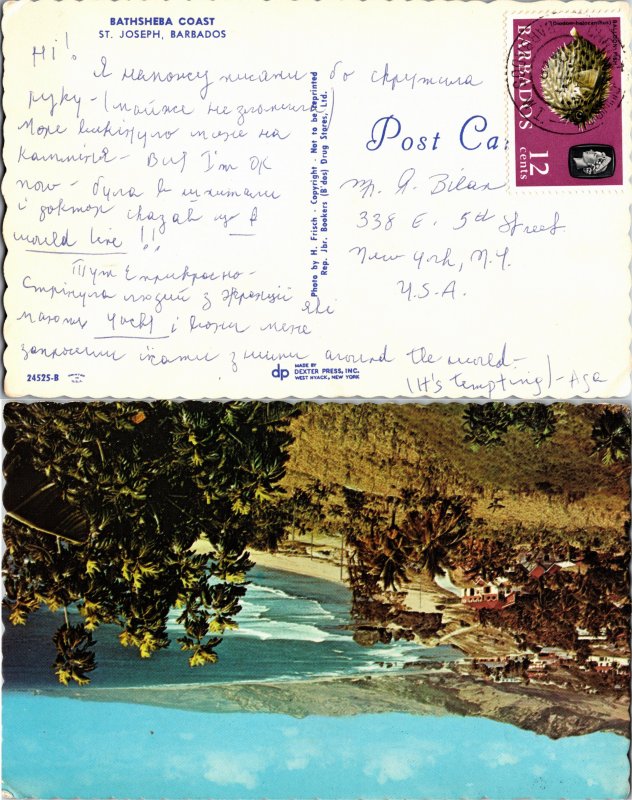 BATHSHEBA COAST
ST. JOSEPH, BARBADOS
Hi!
Я напишу писати бо скрутила
руку - (майже не зломила
море викінуло мене на
каміння - But I'm OK
now - була в шпиталі
і доктор сказав що I
would live !!
Тут є прикрасно -
Стрінула людей з Франції які
мають Yacht і вони мене
запросили їхати з ними around the world -
(It's tempting) - Aga
Photo by H. Frisch - Copyright - Not to be Reprinted
Rep. Jbr. Bookers (B'dos) Drug Stores, Ltd.
Post Car
Mr. A. Bilan
338 E. 5th Street
New York, N.Y.
U.S.A.
BARBADOS
12
cents
24525-B
dp
MADE BY
DEXTER PRESS, INC.
WEST NYACK, NEW YORK